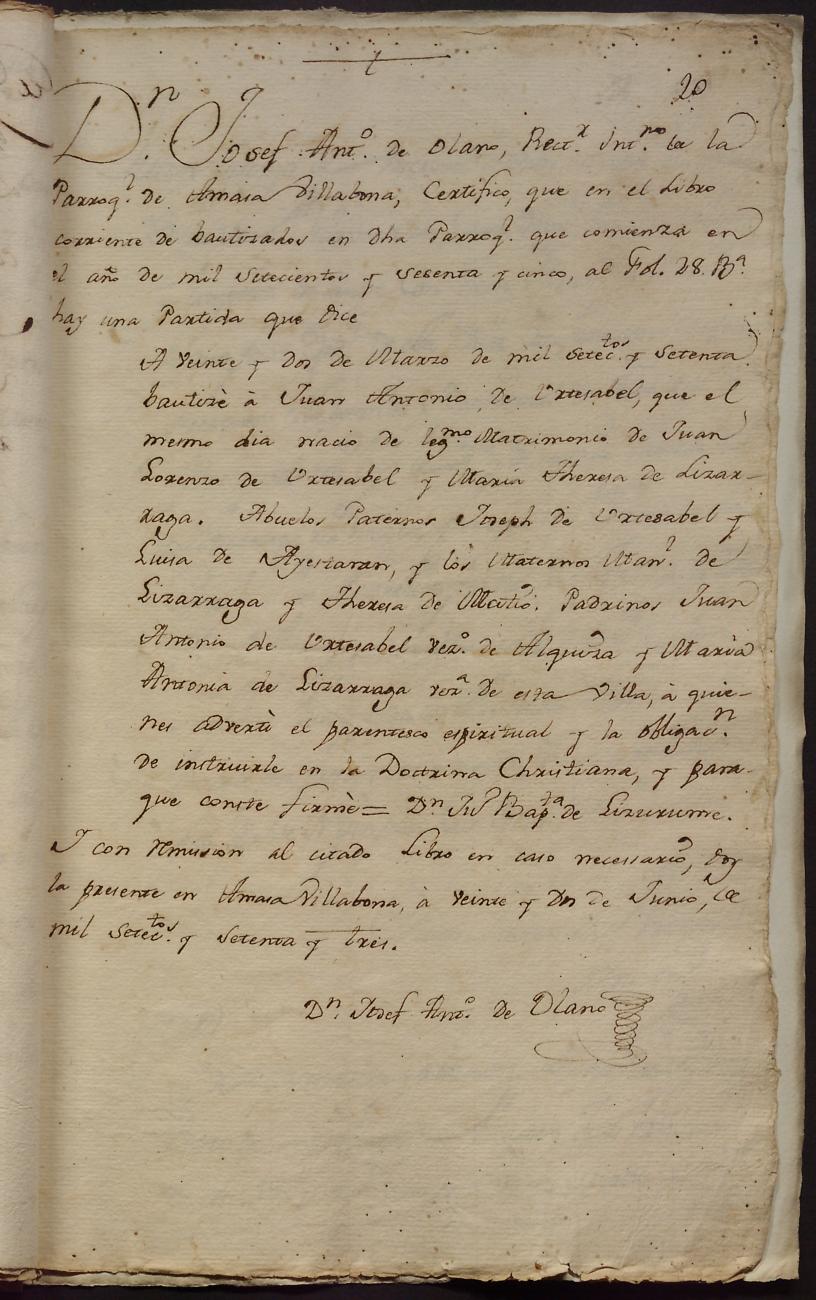 20
D.ⁿ Josef Ant.º de Olano, Rect.ʳ Int.ⁿᵒ de la
Parroq.ˡ de Amasa Villabona, Certifico, que en el Libro
corriente de bautizados en dha Parroq.ˡ que comienza en
el año de mil setecientos y sesenta y cinco, al Fol. 28. B.ᵃ
hay una Partida que dice
A veinte y dos de Marzo de mil setec.ᵗᵒˢ y setenta
bautizè à Juan Antonio de Urtesabel, que el
mesmo dia nacio de leg.ᵐᵒ Matrimonio de Juan
Lorenzo de Urtesabel y Maria Theresa de Lizar-
raga. Abuelos Paternos Joseph de Urtesabel y
Luisa de Ayestaran, y los Maternos Man.ˡ de
Lizarraga y Theresa de Padrinos Juan
Antonio de Urtesabel vez.º de Alquiza y Maria
Antonia de Lizarraga vez.ᵃ de esta Villa, à quie-
nes advertì el parentesco espiritual y la obligac.ⁿ
de instruirle en la Doctrina Christiana, y para-
que conste firmè= D.ⁿ Ju.ⁿ Bap.ᵗᵃ de Lizurume.
I con remission al citado Libro en caso necessario, doy
la presente en Amasa Villabona, à veinte y dos de Junio, de
mil setec.ᵗᵒˢ y setenta y tres.
D.ⁿ Josef Ant.º de Olano